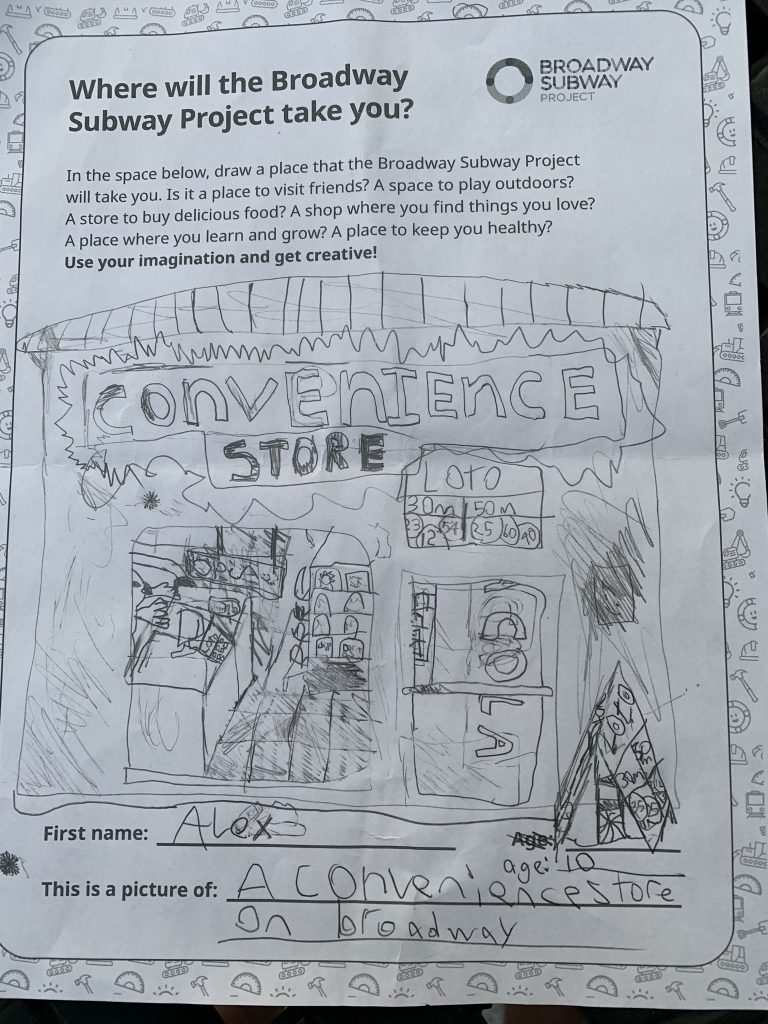 Where will the Broadway
Subway Project take you?
BROADWAY
SUBWAY
PROJECT
In the space below, draw a place that the Broadway Subway Project
will take you. Is it a place to visit friends? A space to play outdoors?
A store to buy delicious food? A shop where you find things you love?
A place where you learn and grow? A place to keep you healthy?
Use your imagination and get creative!
CONVENIENCE
STORE
Loto
30m 50m
23 12 54 25 60 40
COLA
Loto
50m
30m
First name: Alex
Age:
age: 10
This is a picture of: A Convenience store
On broadway